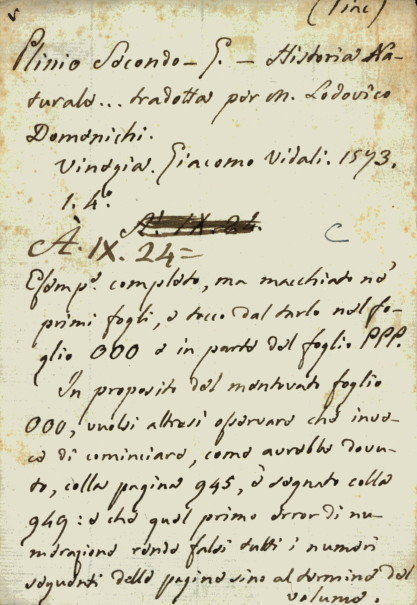 (Plac)
Plinio Secondo – C. – Historia Na-
turale... tradotta per M. Lodovico
Domenichi.
Vinegia. Giacomo Vidali. 1573.
1. 4.º
A. IX. 24.
C
A. IX. 24=
Esemp.e completo, ma macchiato ne'
primi fogli, e tocco dal tarlo nel fo-
glio OOO e in parte del foglio PPP.
In proposito del mentovato foglio
OOO, vuolsi altresì osservare che inve-
ce di cominciare, come avrebbe dovu-
to, colla pagina 945, è segnato colla
949: e che quel primo error di nu-
merazione rende falsi tutti i numeri
seguenti delle pagine sino al termine del
volume.